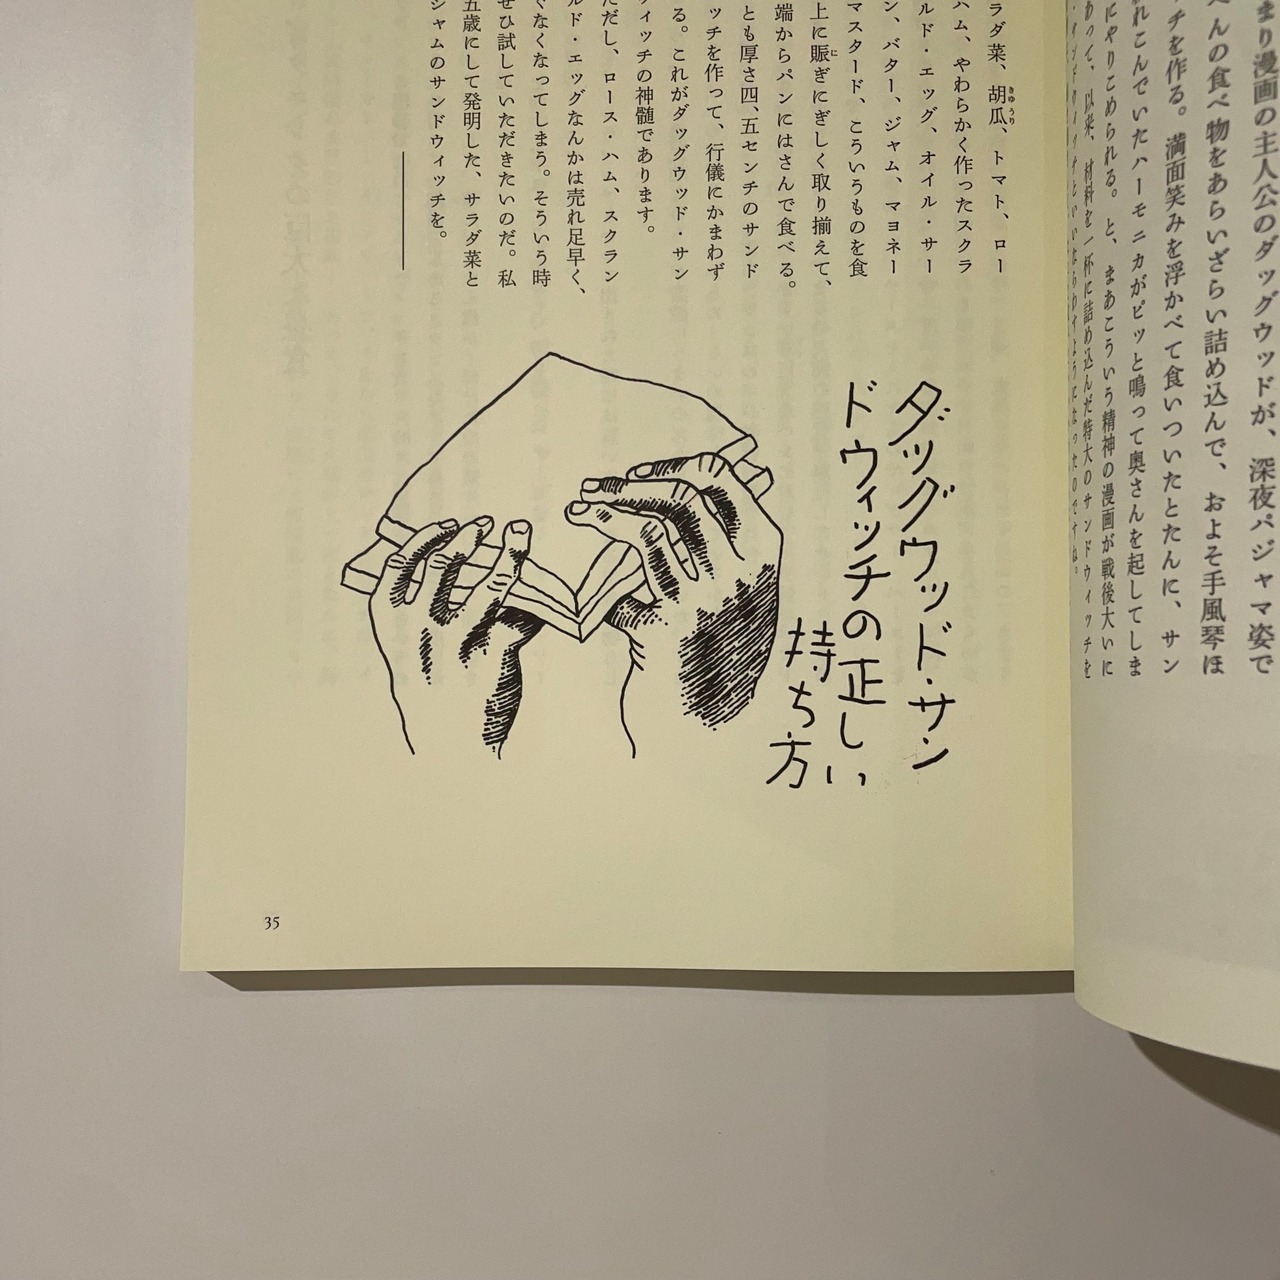 まり漫画の主人公のダッグウッドが、深夜パジャマ姿で
へんの食べ物をあらいざらい詰め込んで、およそ手風琴ほ
チを作る。満面笑みを浮かべて食いついたとたんに、サン
れこんでいたハーモニカがピッと鳴って奥さんを起してしま
にやりこめられる。と、まあこういう精神の漫画が戦後大いに
あって、以来、材料を一杯に詰め込んだ特大のサンドウィッチを
・サンドウィッチといいならわすようになったのですね。
ラダ菜、胡瓜、トマト、ロー
ハム、やわらかく作ったスクラ
ルド・エッグ、オイル・サー
ン、バター、ジャム、マヨネー
マスタード、こういうものを食
上に賑ぎにぎしく取り揃えて、
端からパンにはさんで食べる。
とも厚さ四、五センチのサンド
ッチを作って、行儀にかまわず
る。これがダッグウッド・サン
ィッチの神髄であります。
ただし、ロース・ハム、スクラン
ルド・エッグなんかは売れ足早く、
ぐなくなってしまう。そういう時
ぜひ試していただきたいのだ。私
五歳にして発明した、サラダ菜と
シャムのサンドウィッチを。
ダッグウッド・サン
ドウィッチの正しい
持ち方
35